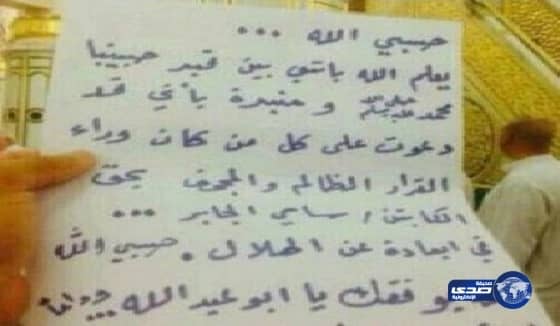 حسبي الله ...
يعلم الله بانني بين قبر حبيبنا
محمد ﷺ و منبرة بأني قد
دعوت على كل من كان وراء
القرار الظالم والمجحف بحق
الكابتن / سامي الجابر ...
في ابعادة عن الهلال . حسبي الله
يوفقك يا ابو عبدالله ...
صحيفة
صدى
الإلكترونية